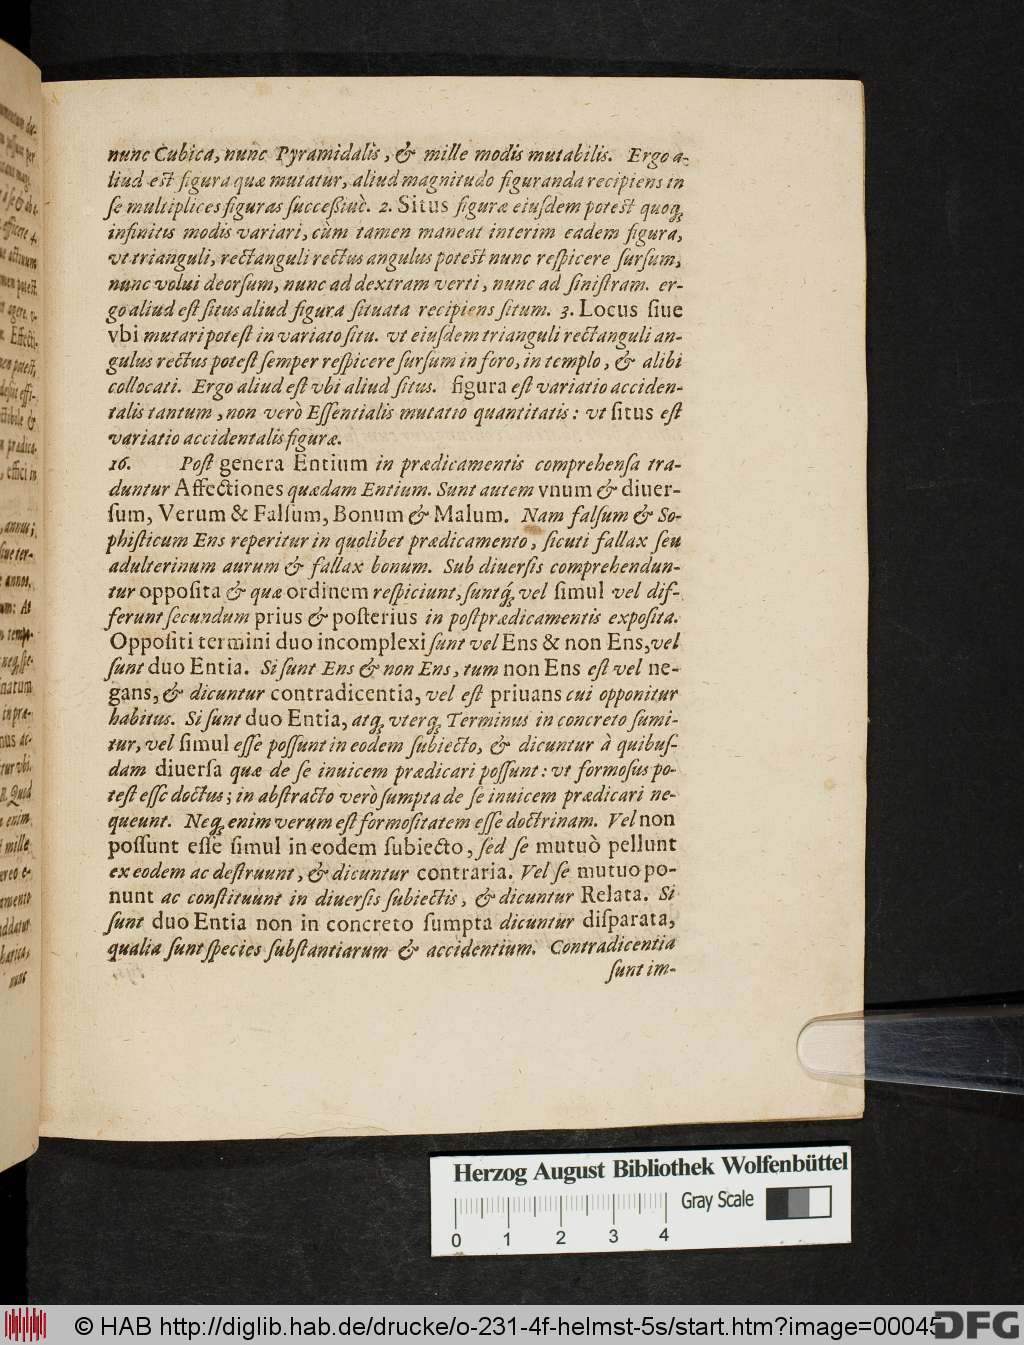 nunc Cubica, nunc Pyramidalis, & mille modis mutabilis. Ergo a-
liud est figura quæ mutatur, aliud magnitudo figuranda recipiens in
se multiplices figuras succeßiuè. 2. Situs figuræ eiusdem potest quoq;
infinitis modis variari, cùm tamen maneat interim eadem figura,
vt trianguli, rectanguli rectus angulus potest nunc respicere sursum,
nunc volui deorsum, nunc ad dextram verti, nunc ad sinistram. er-
go aliud est situs aliud figura situata recipiens situm. 3. Locus siue
vbi mutari potest in variato situ. vt eiusdem trianguli rectanguli an-
gulus rectus potest semper respicere sursum in foro, in templo, & alibi
collocati. Ergo aliud est vbi aliud situs. figura est variatio acciden-
talis tantum, non verò Essentialis mutatio quantitatis: vt situs est
variatio accidentalis figuræ.
16. Post genera Entium in prædicamentis comprehensa tra-
duntur Affectiones quædam Entium. Sunt autem vnum & diuer-
sum, Verum & Falsum, Bonum & Malum. Nam falsum & So-
phisticum Ens reperitur in quolibet prædicamento, sicuti fallax seu
adulterinum aurum & fallax bonum. Sub diuersis comprehendun-
tur opposita & quæ ordinem respiciunt, suntq́; vel simul vel dif-
ferunt secundum prius & posterius in postprædicamentis exposita.
Oppositi termini duo incomplexi sunt vel Ens & non Ens, vel
sunt duo Entia. Si sunt Ens & non Ens, tum non Ens est vel ne-
gans, & dicuntur contradicentia, vel est priuans cui opponitur
habitus. Si sunt duo Entia, atq; vterq; Terminus in concreto sumi-
tur, vel simul esse possunt in eodem subiecto, & dicuntur à quibus-
dam diuersa quæ de se inuicem prædicari possunt: vt formosus po-
test esse doctus; in abstracto verò sumpta de se inuicem prædicari ne-
queunt. Neq; enim verum est formositatem esse doctrinam. Vel non
possunt esse simul in eodem subiecto, sed se mutuò pellunt
ex eodem ac destruunt, & dicuntur contraria. Vel se mutuo po-
nunt ac constituunt in diuersis subiectis, & dicuntur Relata. Si
sunt duo Entia non in concreto sumpta dicuntur disparata,
qualia sunt species substantiarum & accidentium. Contradicentia
sunt im-
Herzog August Bibliothek Wolfenbüttel
Gray Scale
0 1 2 3 4
© HAB http://diglib.hab.de/drucke/o-231-4f-helmst-5s/start.htm?image=00045
DFG